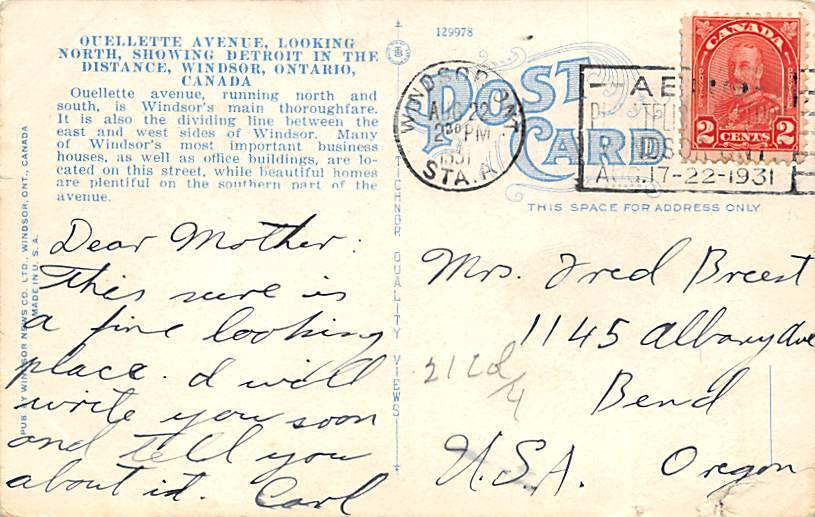 OUELLETTE AVENUE, LOOKING
NORTH, SHOWING DETROIT IN THE
DISTANCE, WINDSOR, ONTARIO,
CANADA
Ouellette avenue, running north and
south, is Windsor's main thoroughfare.
It is also the dividing line between the
east and west sides of Windsor. Many
of Windsor's most important business
houses, as well as office buildings, are lo-
cated on this street, while beautiful homes
are plentiful on the southern part of the
avenue.
PUB. BY WINDSOR NEWS CO. LTD., WINDSOR, ONT., CANADA
MADE IN U. S. A.
Dear Mother:
This sure is
a fine looking
place. I will
write you soon
and tell you
about it. Carl
129978
TICHNOR QUALITY VIEWS
POST
CARD
THIS SPACE FOR ADDRESS ONLY
WINDSOR, ONT.
AUG 22
2 30 PM
1931
STA. A
AUG. 17-22-1931
CANADA
2 CENTS 2
Mrs. Fred Breest
1145 Albany Ave
Bend
U.S.A. Oregon